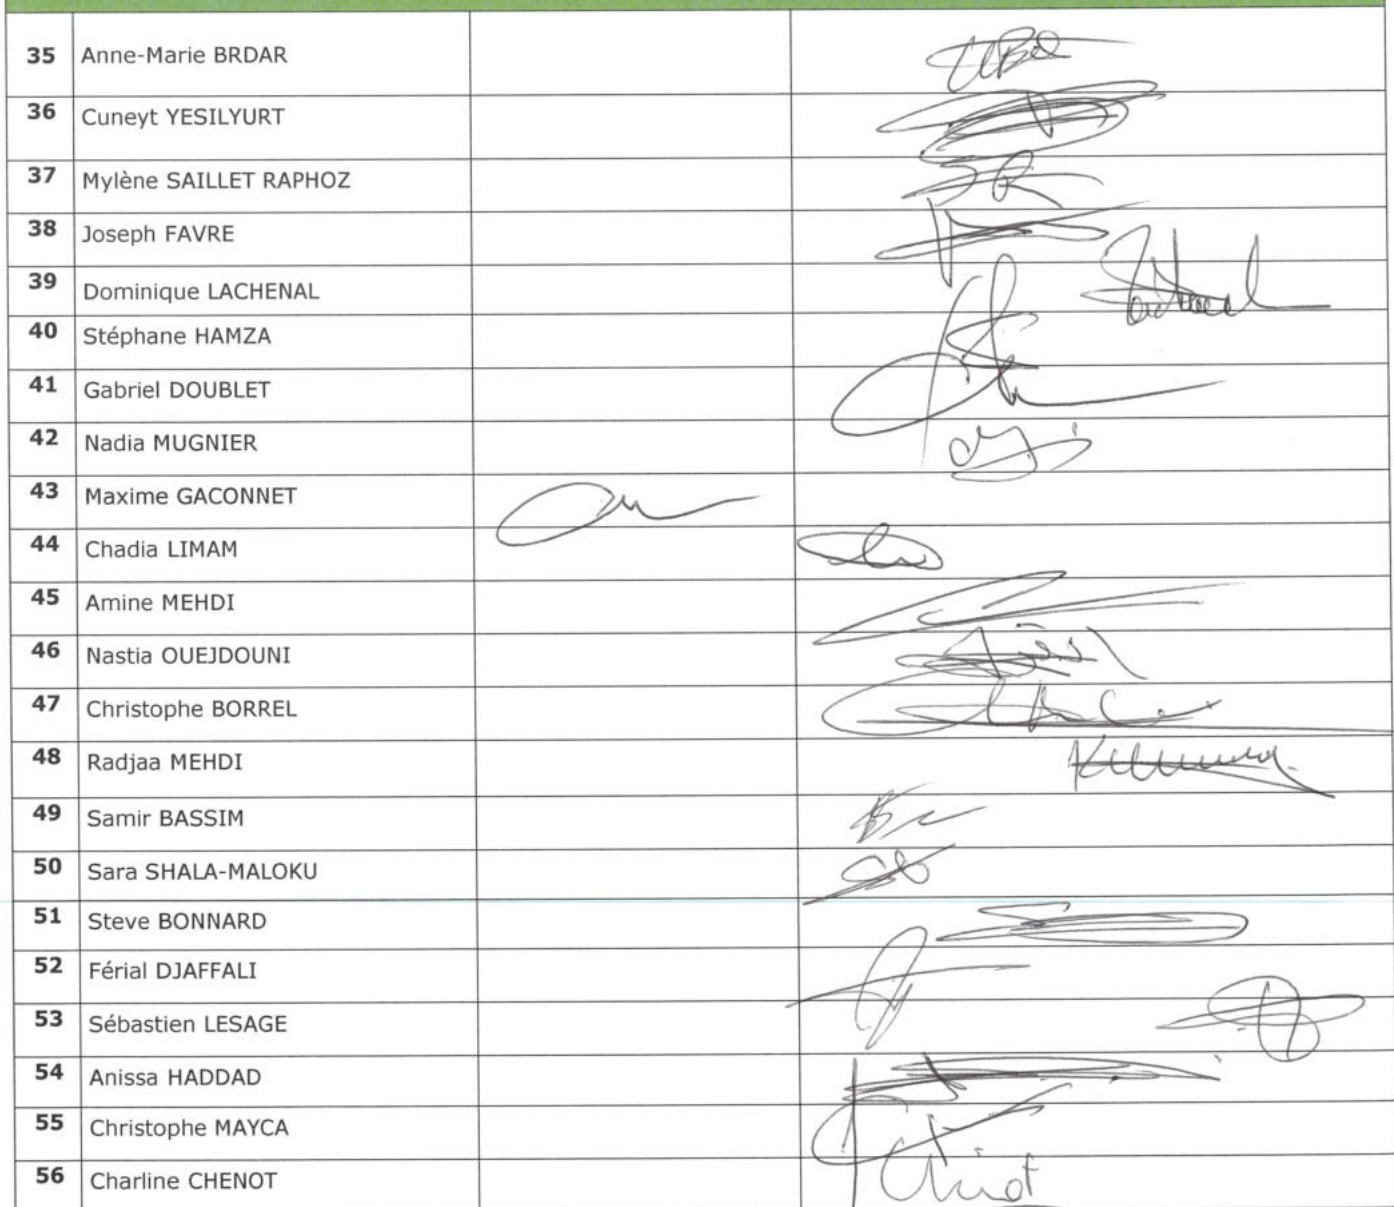 35 Anne-Marie BRDAR
36 Cuneyt YESILYURT
37 Mylène SAILLET RAPHOZ
38 Joseph FAVRE
39 Dominique LACHENAL
40 Stéphane HAMZA
41 Gabriel DOUBLET
42 Nadia MUGNIER
43 Maxime GACONNET
44 Chadia LIMAM
45 Amine MEHDI
46 Nastia OUEJDOUNI
47 Christophe BORREL
48 Radjaa MEHDI
49 Samir BASSIM
50 Sara SHALA-MALOKU
51 Steve BONNARD
52 Férial DJAFFALI
53 Sébastien LESAGE
54 Anissa HADDAD
55 Christophe MAYCA
56 Charline CHENOT